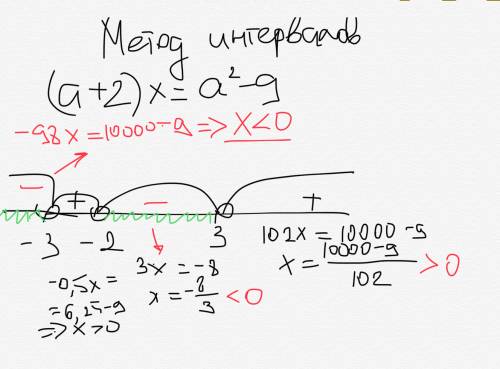 Метод интервалов
(a+2)x=a²-9
-98x=10000-9=>x<0
- + - +
-3 -2 3
102x=10000-9
x=10000-9/102>0
3x=-8
x=-8/3<0
-0,5x=
=6,25-9
=>x>0